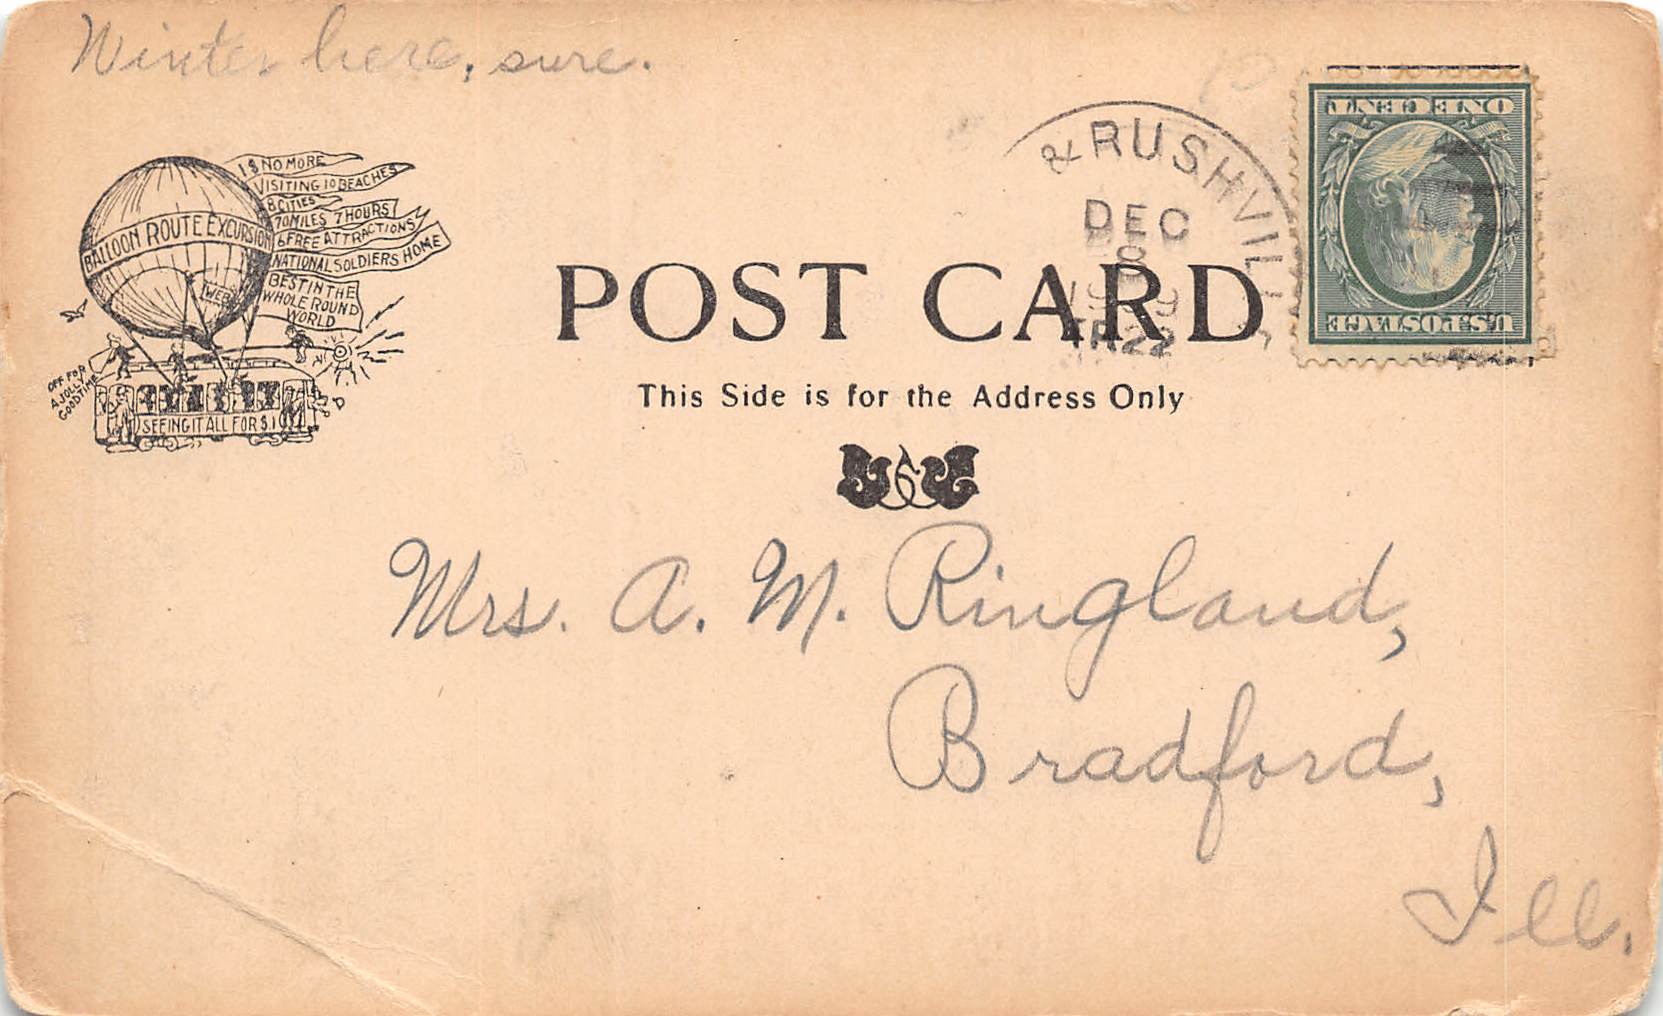 Winter here, sure.
1$ NO MORE
VISITING 10 BEACHES
8 CITIES
70 MILES 7 HOURS
6 FREE ATTRACTIONS
NATIONAL SOLDIERS HOME
BEST IN THE
WHOLE ROUND
WORLD
BALLOON ROUTE EXCURSION
OFF FOR
A JOLLY
GOOD TIME
SEEING IT ALL FOR $.1
& RUSHVIL
DEC
8
1909
TR 22
ONE CENT
U.S. POSTAGE
POST CARD
This Side is for the Address Only
Mrs. A. M. Ringland,
Bradford,
Ill.